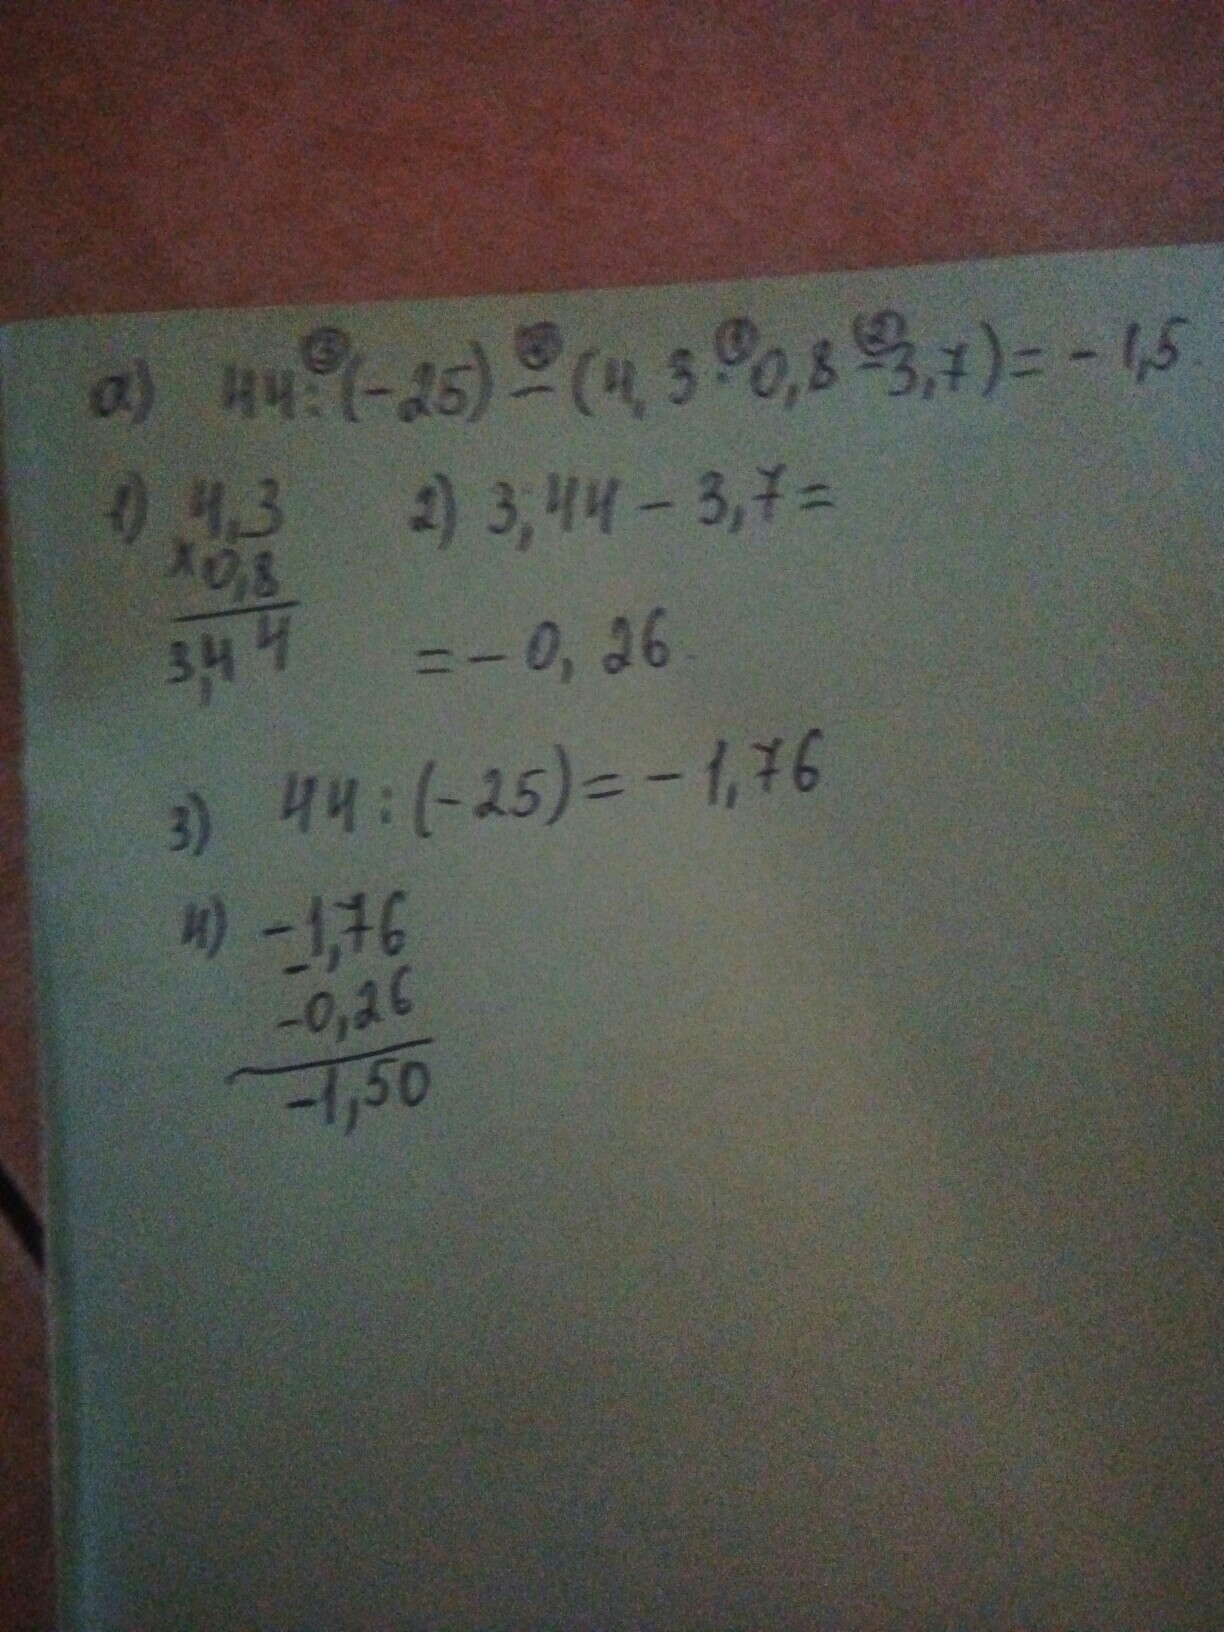 а) 44 : (-25) - (4,3 · 0,8 - 3,7) = - 1,5
③ ④ ① ②
1) 4,3
× 0,8
3,44
2) 3,44 - 3,7 =
= - 0,26
3) 44 : (-25) = - 1,76
4) - 1,76
-
- 0,26
- 1,50